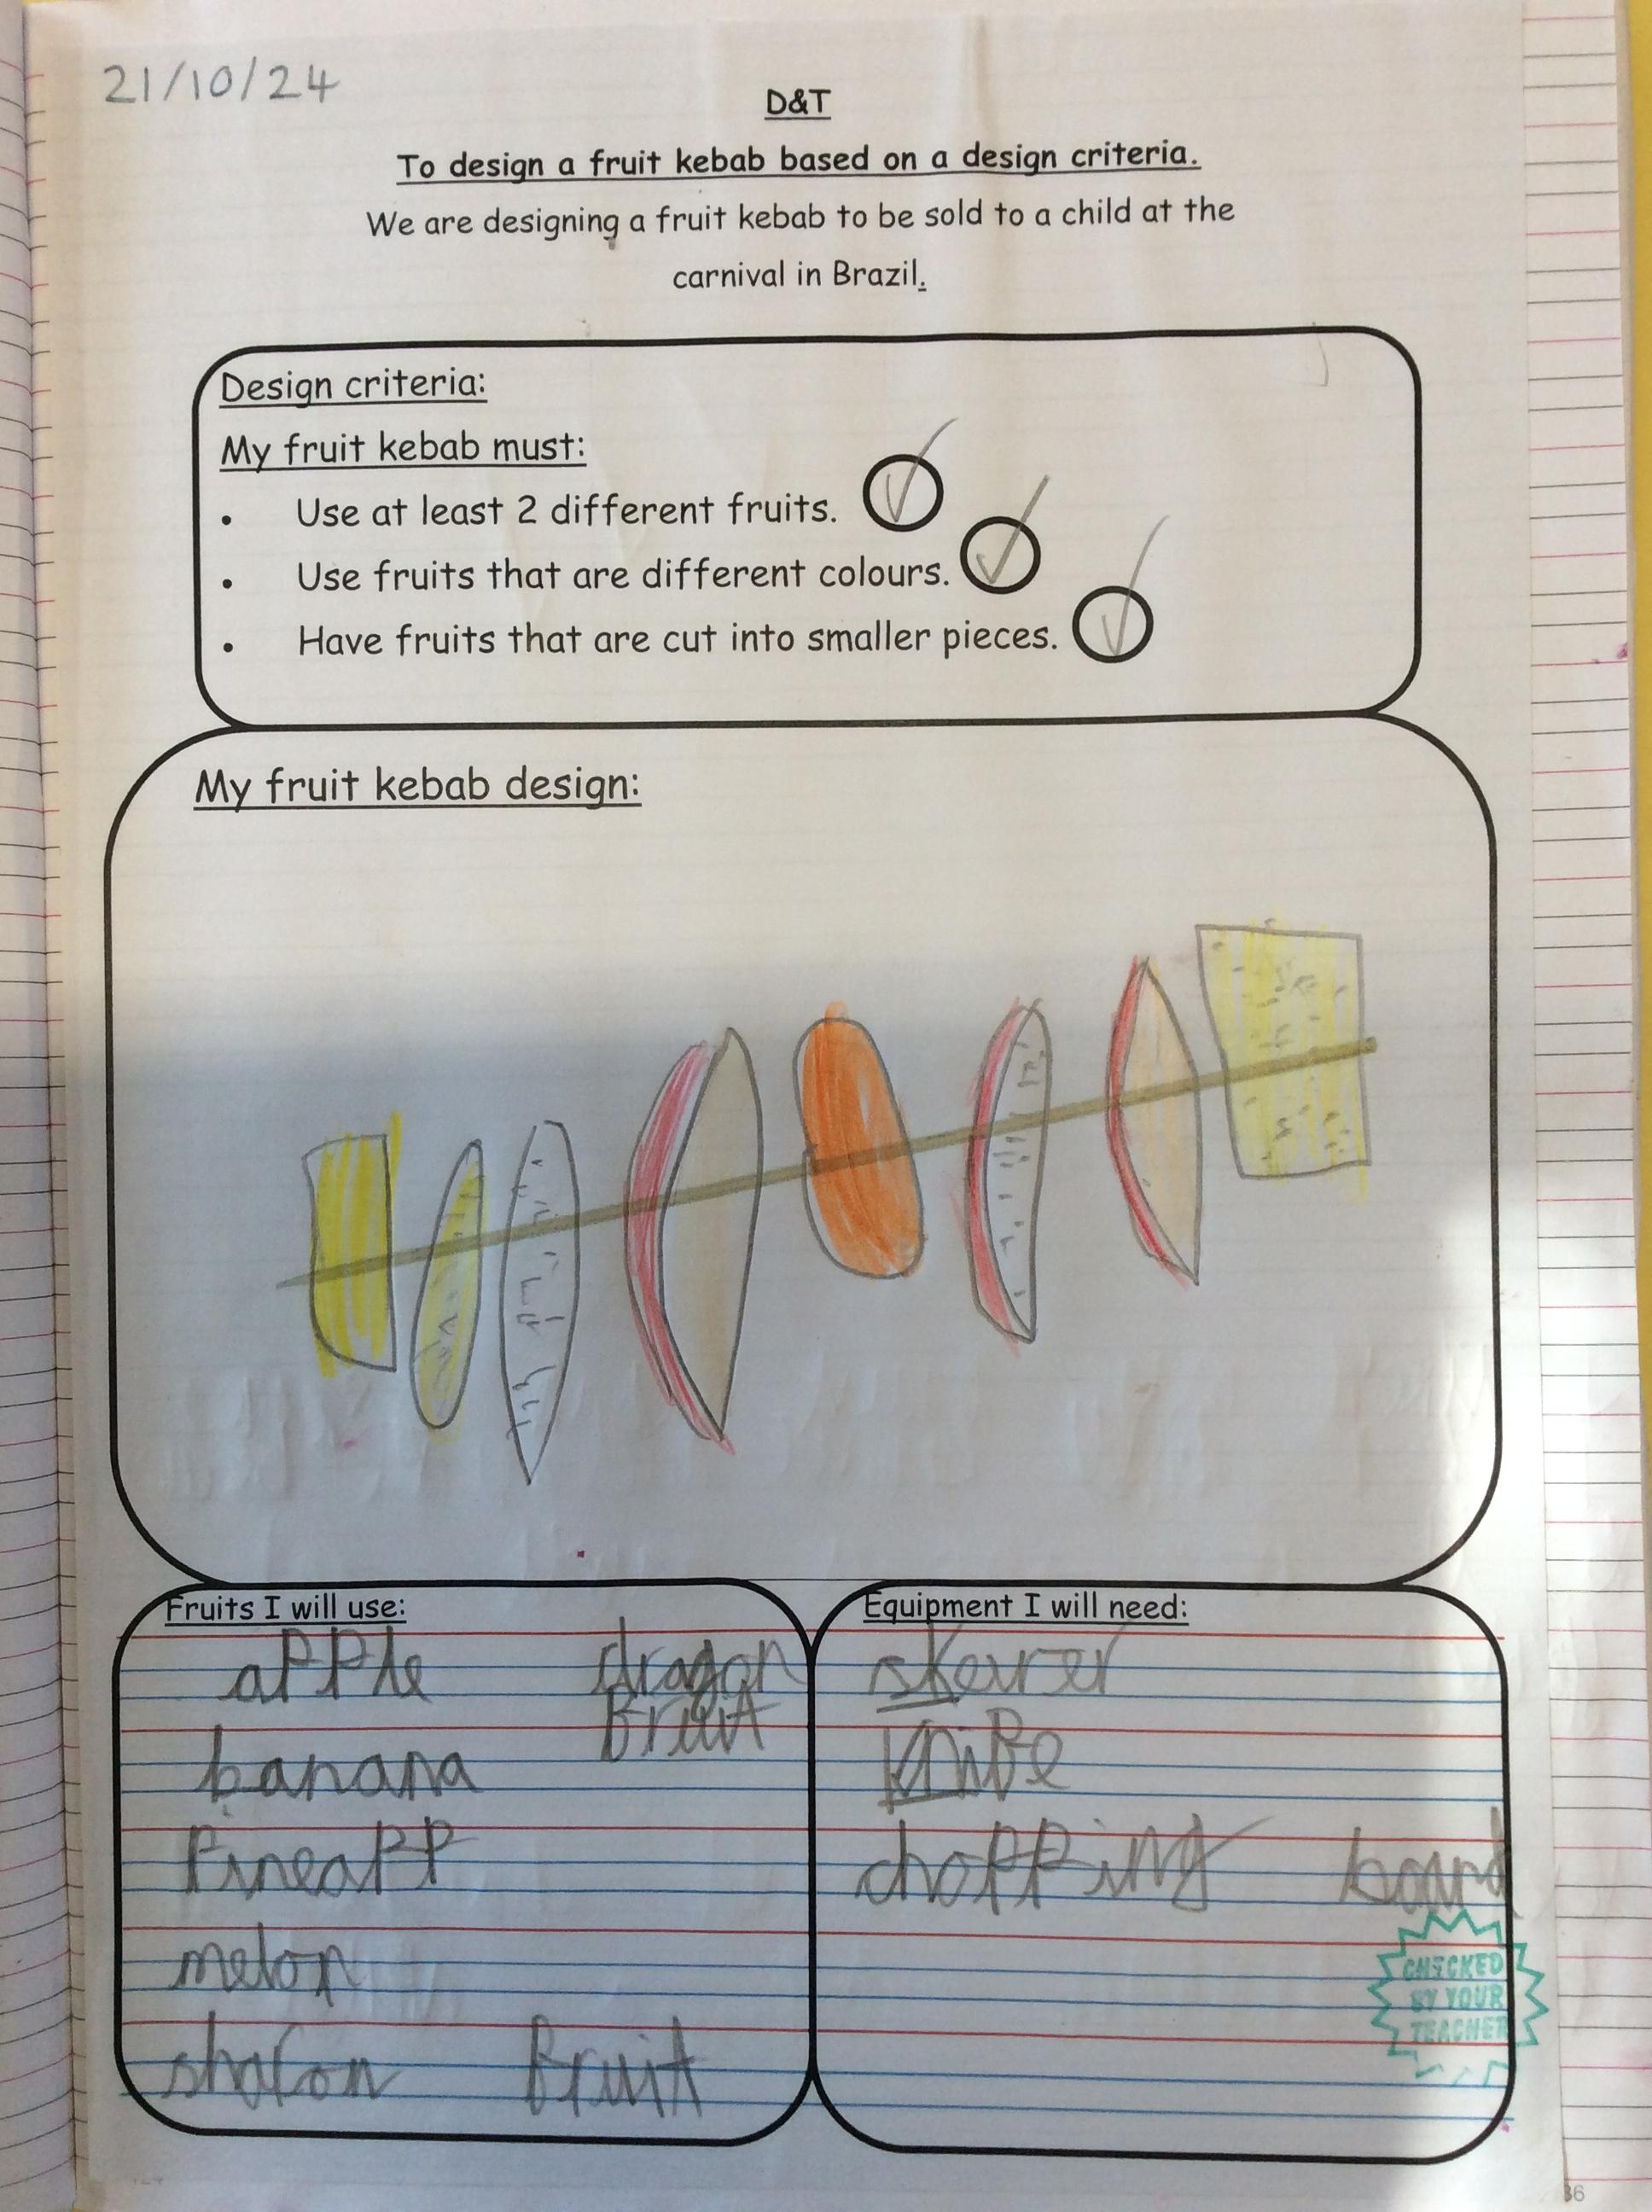 21/10/24
D&T
To design a fruit kebab based on a design criteria.
We are designing a fruit kebab to be sold to a child at the
carnival in Brazil.
Design criteria:
My fruit kebab must:
• Use at least 2 different fruits.
• Use fruits that are different colours.
• Have fruits that are cut into smaller pieces.
My fruit kebab design:
Fruits I will use:
apple dragon
fruit
banana
Pineapp
melon
sharon fruit
Equipment I will need:
skewer
knife
chopping board
CHECKED
BY YOUR
TEACHER
36